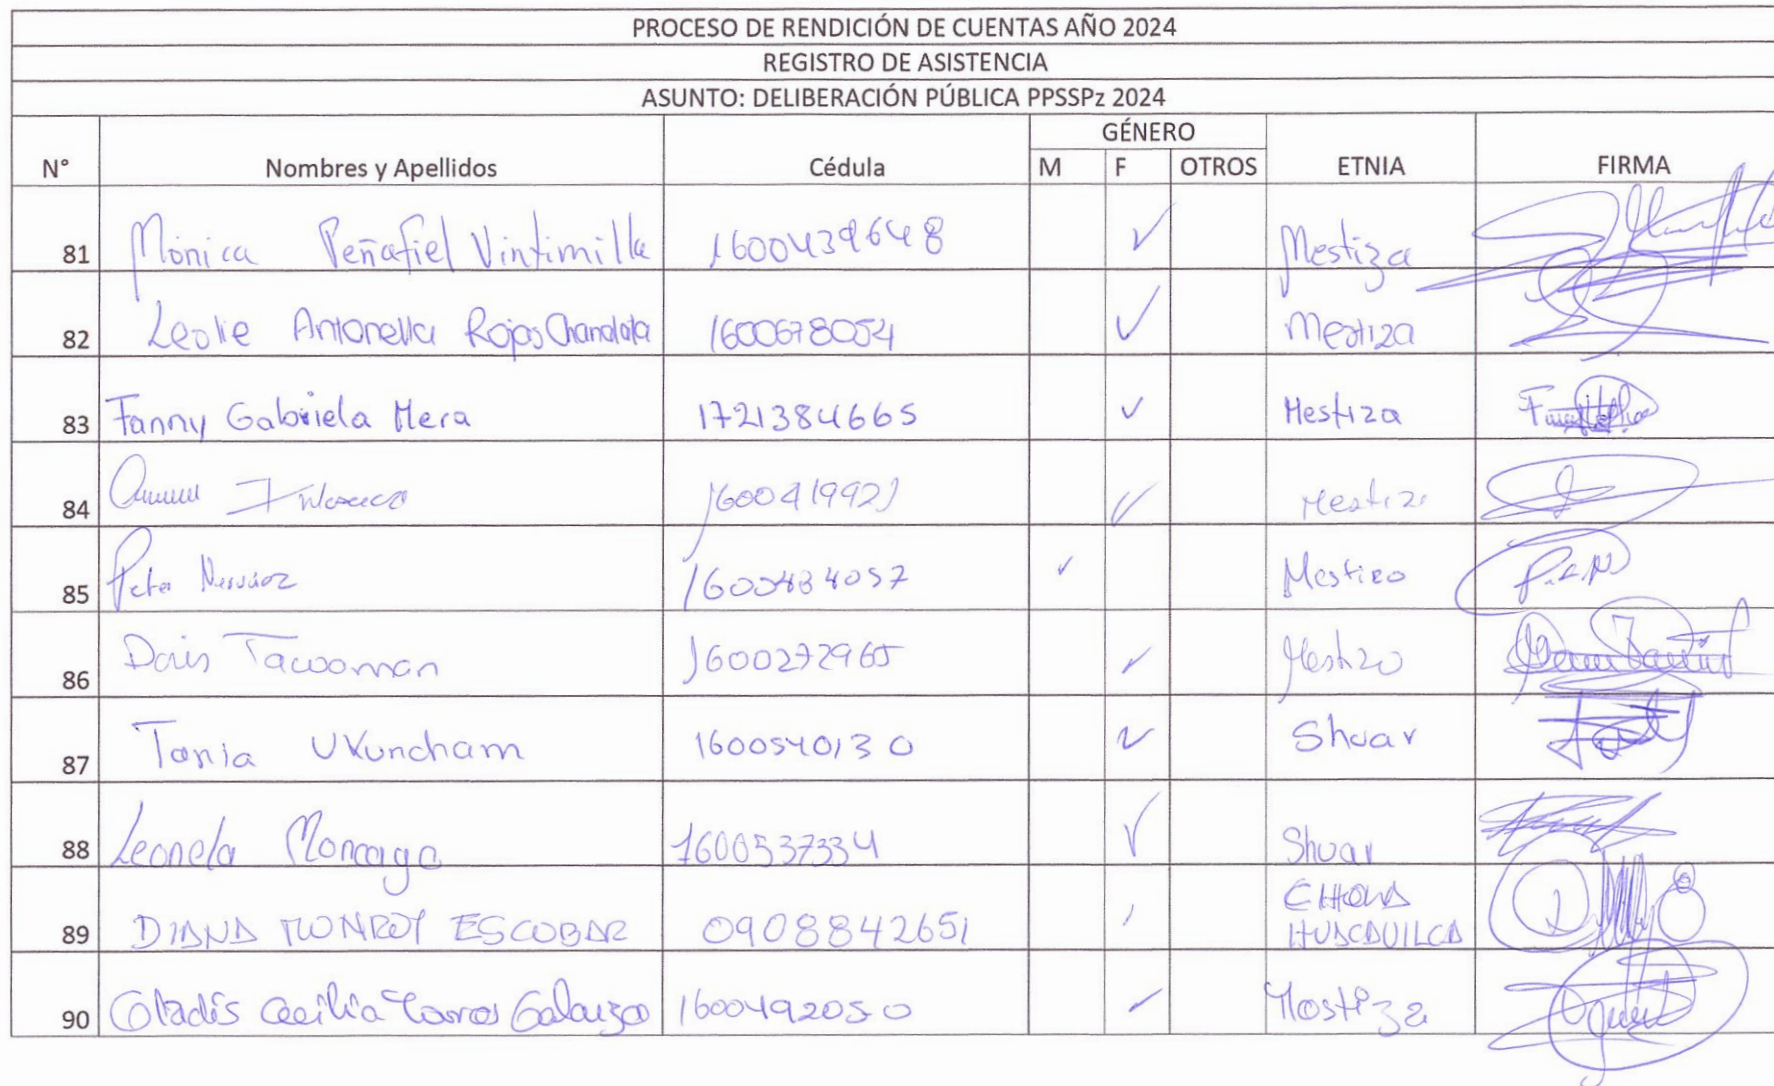 PROCESO DE RENDICIÓN DE CUENTAS AÑO 2024
REGISTRO DE ASISTENCIA
ASUNTO: DELIBERACIÓN PÚBLICA PPSSPz 2024
GÉNERO
N° Nombres y Apellidos Cédula M F OTROS ETNIA FIRMA
81 Mónica Peñafiel Vintimilla 1600439648 ✓ Mestiza
82 Leslie Antonella Rojas 1600678054 ✓ Mestiza
83 Fanny Gabriela Mera 1721384665 ✓ Mestiza
84 1600419921 ✓ Mestiz
85 Peter 1600484057 ✓ Mestizo P.L.N
86 Doris 1600272965 ✓ Mestizo
87 Tania Ukuncham 1600540130 ✓ Shuar
88 Leonela Moncayo 1600537334 ✓ Shuar
89 DIANA MONROY ESCOBAR 0908842651 ✓ CHOLA
HUANCAVILCA
90 Gladis Cecilia Torres 1600492050 ✓ Mestiza